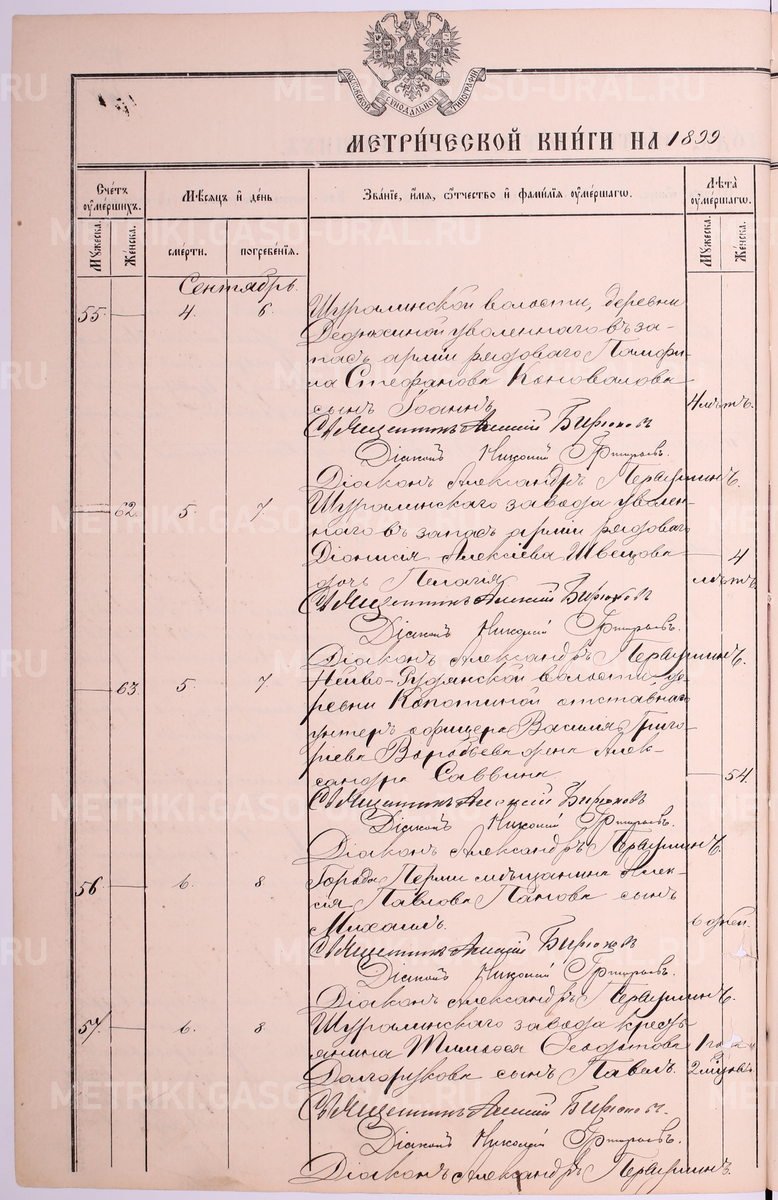 МОСКОВСКОЙ СѴНОДАЛЬНОЙ ТИПОГРАФІИ
МЕТРИ́ЧЕСКОЙ КНИ́ГИ НА 1899
Сче́тъ ᲂу҆ме́ршихъ.
Мꙋ́жеска.
Же́нска.
Мѣ́сѧцъ и҆ де́нь
сме́рти.
погребе́нїѧ.
Зва́нїе, и҆́мѧ, ѻ҆́тчество и҆ фами́лїѧ ᲂу҆ме́ршагѡ.
Лѣ́та ᲂу҆ме́ршагѡ.
Мꙋ́жеска.
Же́нска.
Сентябрь.
55. — 4. 6. Шуралинской волости, деревни
Дедюхиной уволеннаго въ за-
пасъ арміи рядоваго Памфи-
ла Стефанова Коновалова
сынъ Іоаннъ 4 лѣтъ.
Священникъ Алексій Бирюковъ
Діаконъ Николай Григорьевъ.
Діаконъ Александръ Первушинъ.
— 62. 5. 7. Шуралинскаго завода уволен-
наго въ запасъ арміи рядоваго
Діонисія Алексіева Швецова — 4
дочь Пелагія лѣтъ.
Священникъ Алексій Бирюковъ
Діаконъ Николай Григорьевъ.
Діаконъ Александръ Первушинъ.
— 63. 5. 7. Нейво-Рудянской волости де-
ревни Копотиной отставнаго
унтеръ офицера Василія Григо-
ріева Воробьева жена Алек-
сандра Саввина — 54.
Священникъ Алексій Бирюковъ
Діаконъ Николай Григорьевъ.
Діаконъ Александръ Первушинъ.
56 — 6. 8. Города Перми мѣщанина Алек-
сія Павлова Панова сынъ
Михаилъ. 6 дней.
Священникъ Алексій Бирюковъ
Діаконъ Николай Григорьевъ.
Діаконъ Александръ Первушинъ.
57. — 6. 8. Шуралинскаго завода кресть-
янина Тимоѳея Ѳеофитова 1 годъ
Долгорукова сынъ Павелъ. 2 мѣс.
Священникъ Алексій Бирюковъ.
Діаконъ Николай Григорьевъ.
Діаконъ Александръ Первушинъ.
METRIKI.GASO-URAL.RU